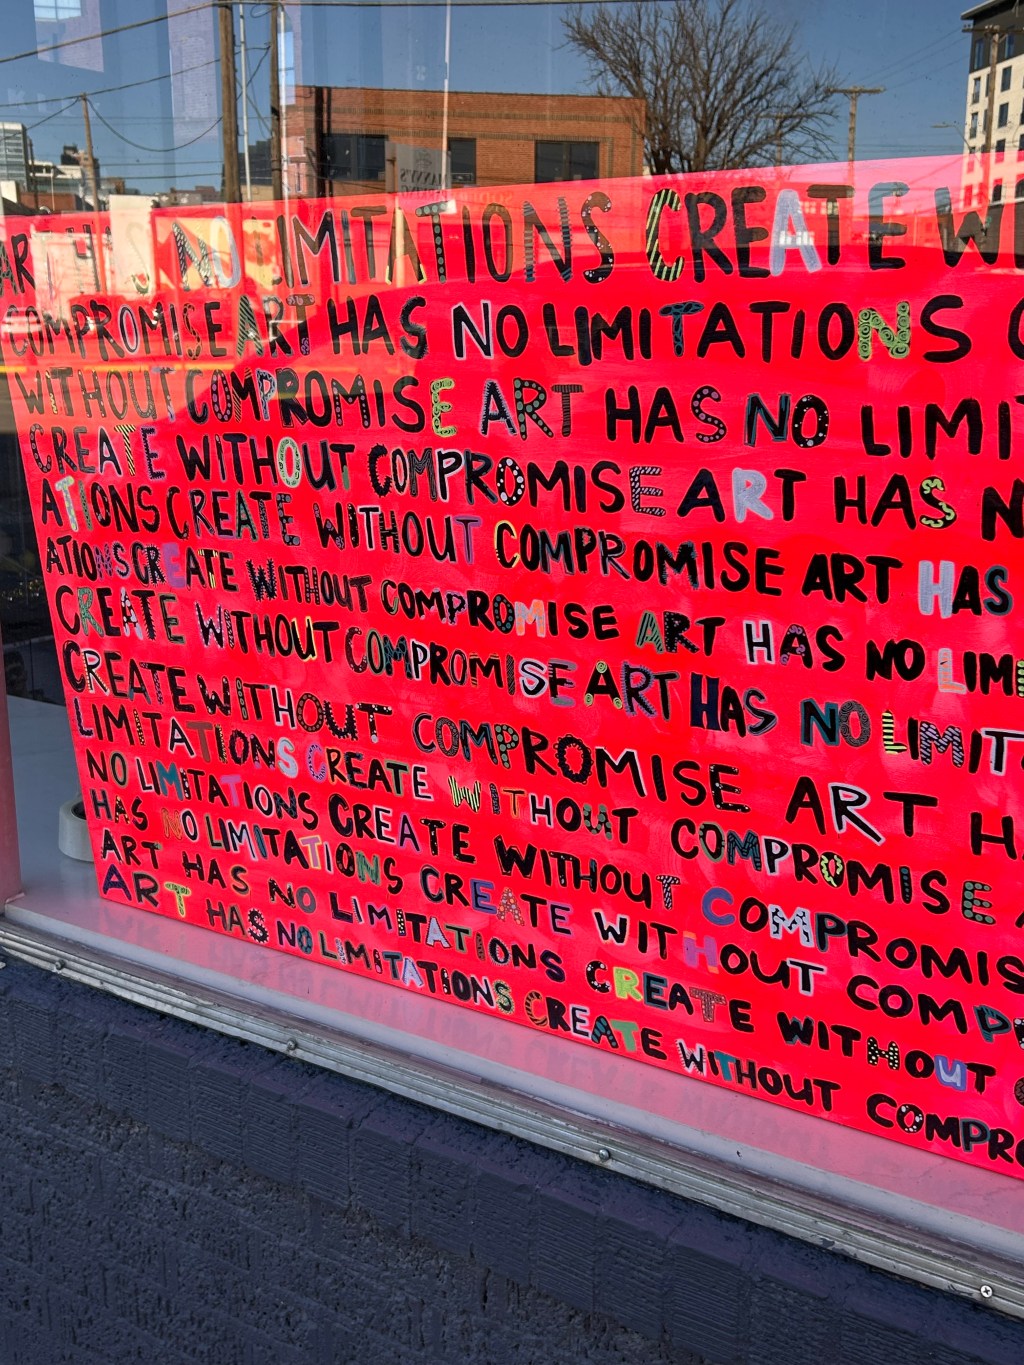 ART HAS NO LIMITATIONS CREATE WI
COMPROMISE ART HAS NO LIMITATIONS C
WITHOUT COMPROMISE ART HAS NO LIMI
CREATE WITHOUT COMPROMISE ART HAS N
ATIONS CREATE WITHOUT COMPROMISE ART HAS
ATIONS CREATE WITHOUT COMPROMISE ART HAS NO LIMI
CREATE WITHOUT COMPROMISE ART HAS NO LIMIT
CREATE WITHOUT COMPROMISE ART H
LIMITATIONS CREATE WITHOUT COMPROMISE
NO LIMITATIONS CREATE WITHOUT COMPROMIS
HAS NO LIMITATIONS CREATE WITHOUT COMP
ART HAS NO LIMITATIONS CREATE WITHOUT
ART HAS NO LIMITATIONS CREATE WITHOUT COMPR